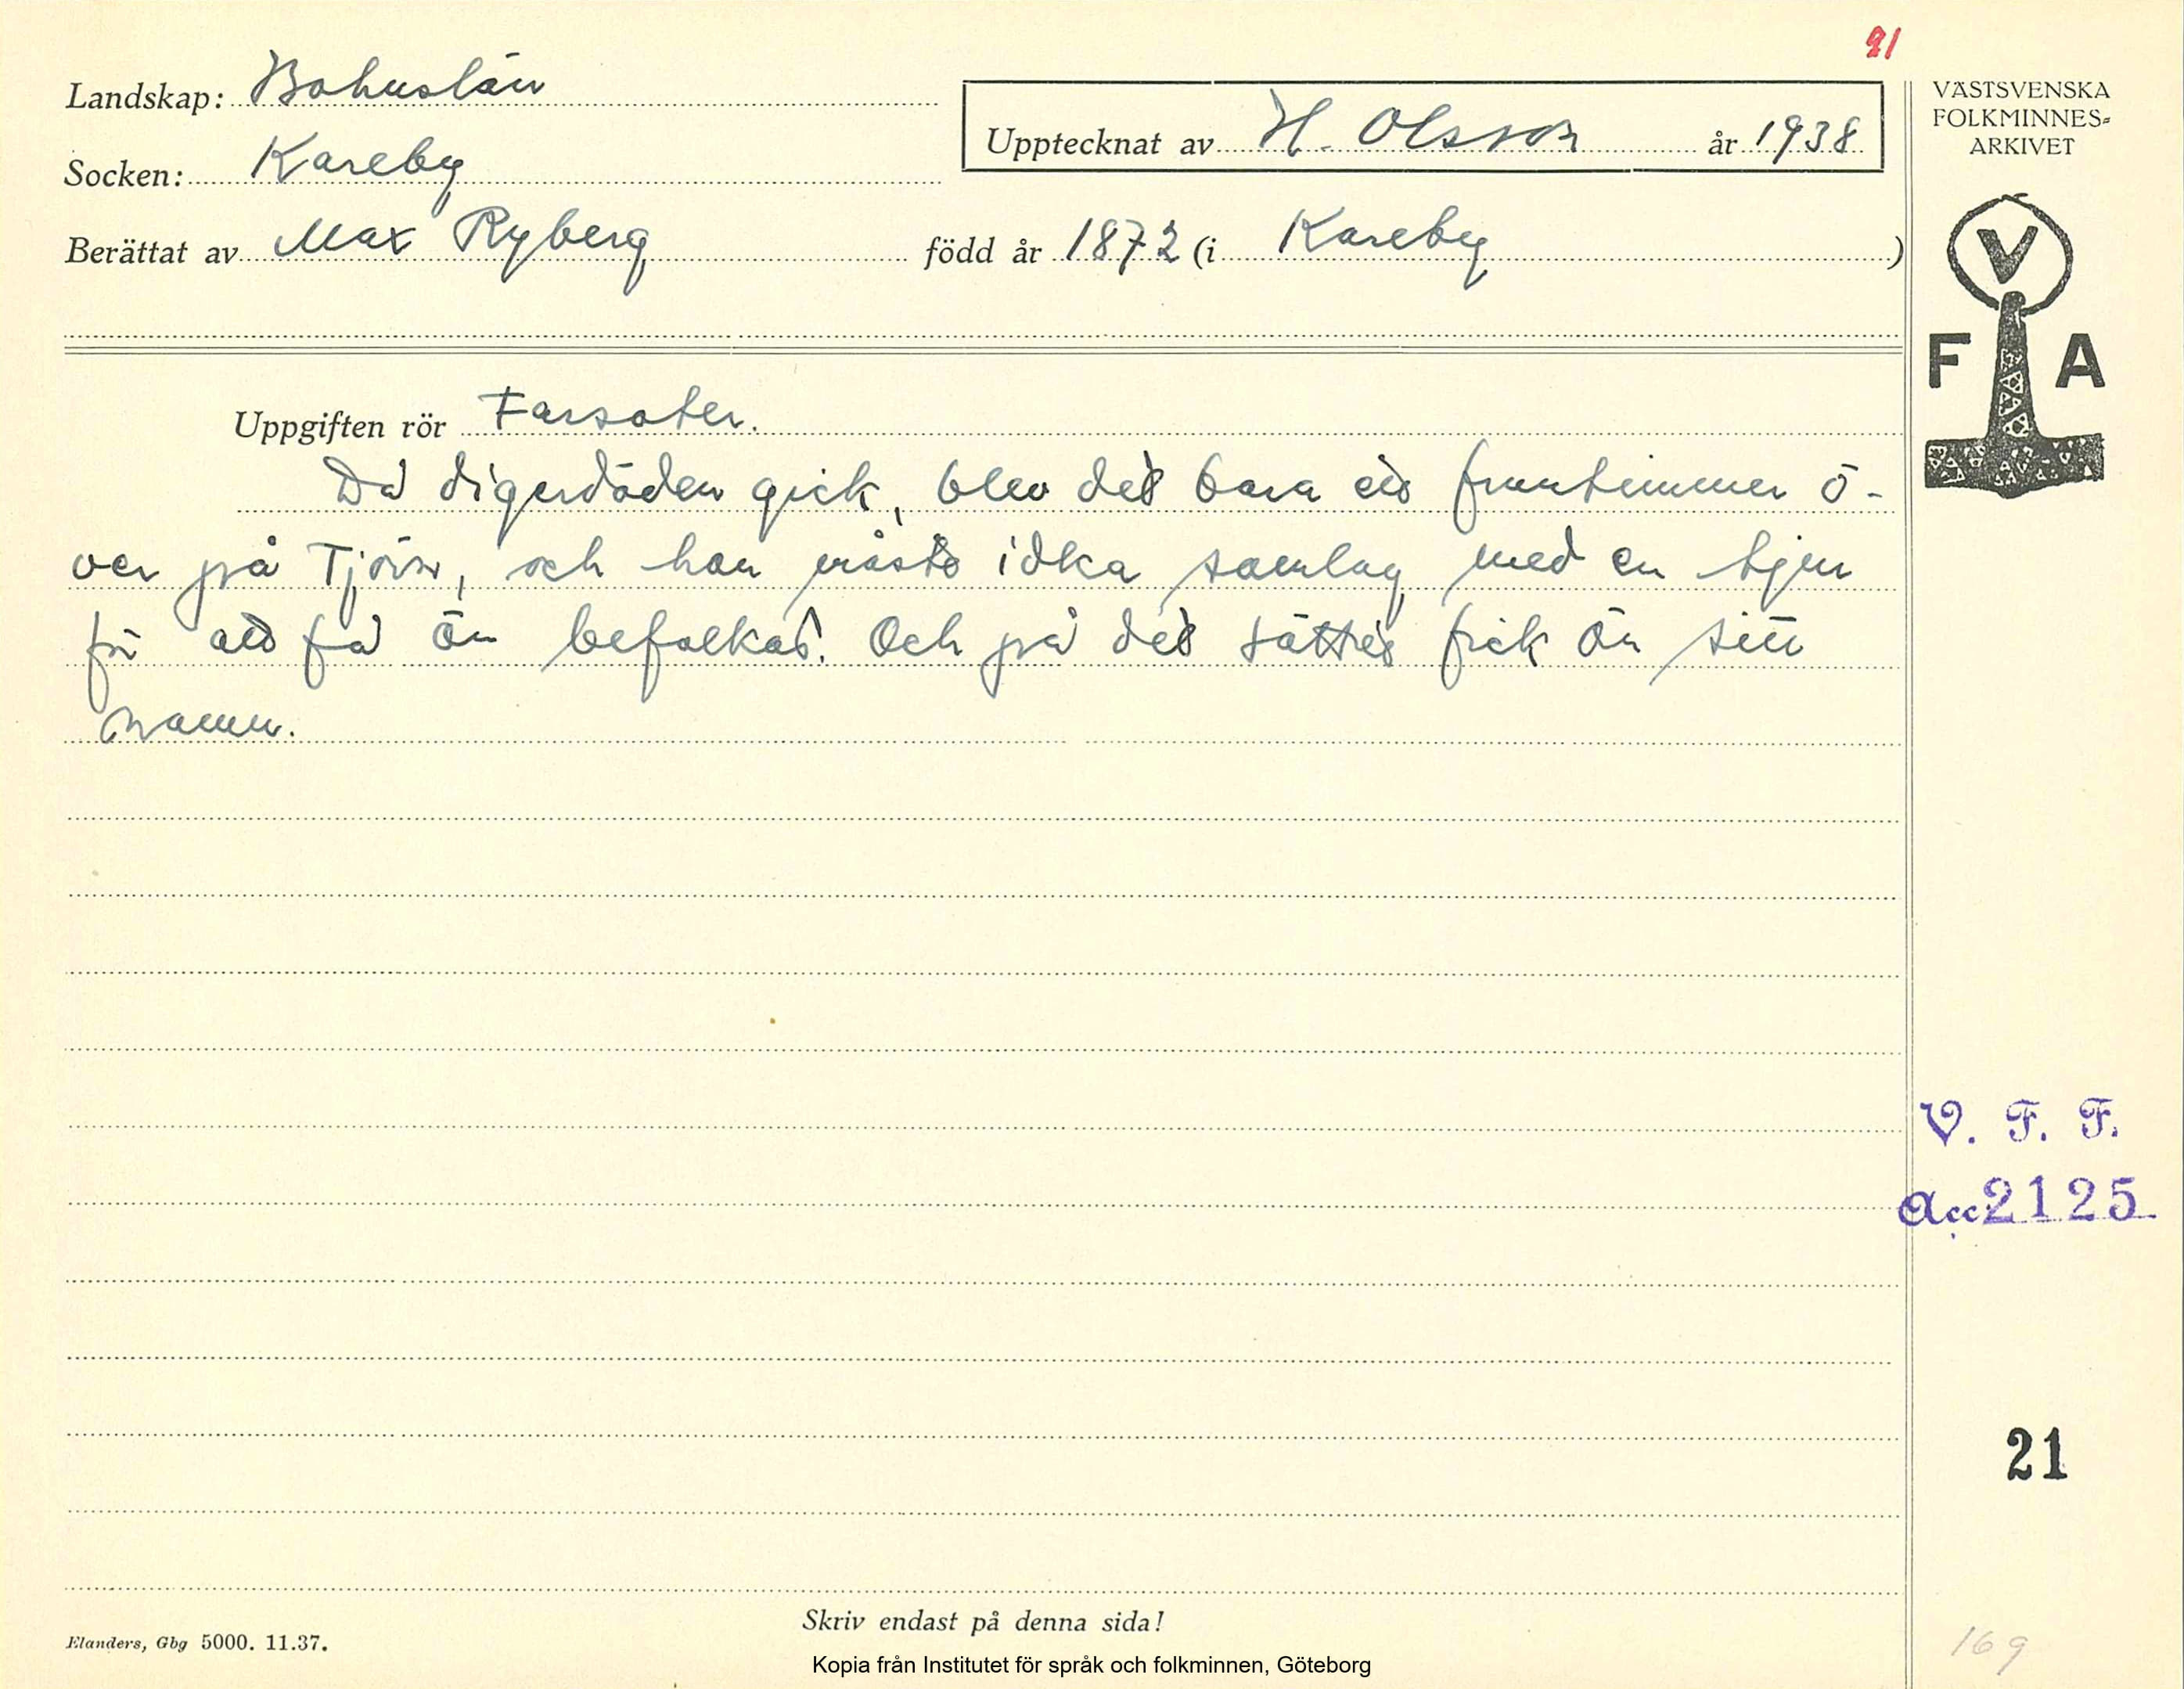 91
Landskap: Bohuslän
Socken: Kareby
Berättat av Max Ryberg född år 1872 (i Kareby)
Upptecknat av H. Olsson år 1938
VÄSTSVENSKA
FOLKMINNES-
ARKIVET
V
F A
Uppgiften rör Farsoter.
Då digerdöden gick, blev det bara ett fruntimmer ö-
ver på Tjörn, och hon måste idka samlag med en tjur
för att få ön befolkad. Och på det sättet fick ön sitt
namn.
V. F. F.
Acc 2125
21
Skriv endast på denna sida!
Elanders, Gbg 5000. 11.37.
169
Kopia från Institutet för språk och folkminnen, Göteborg